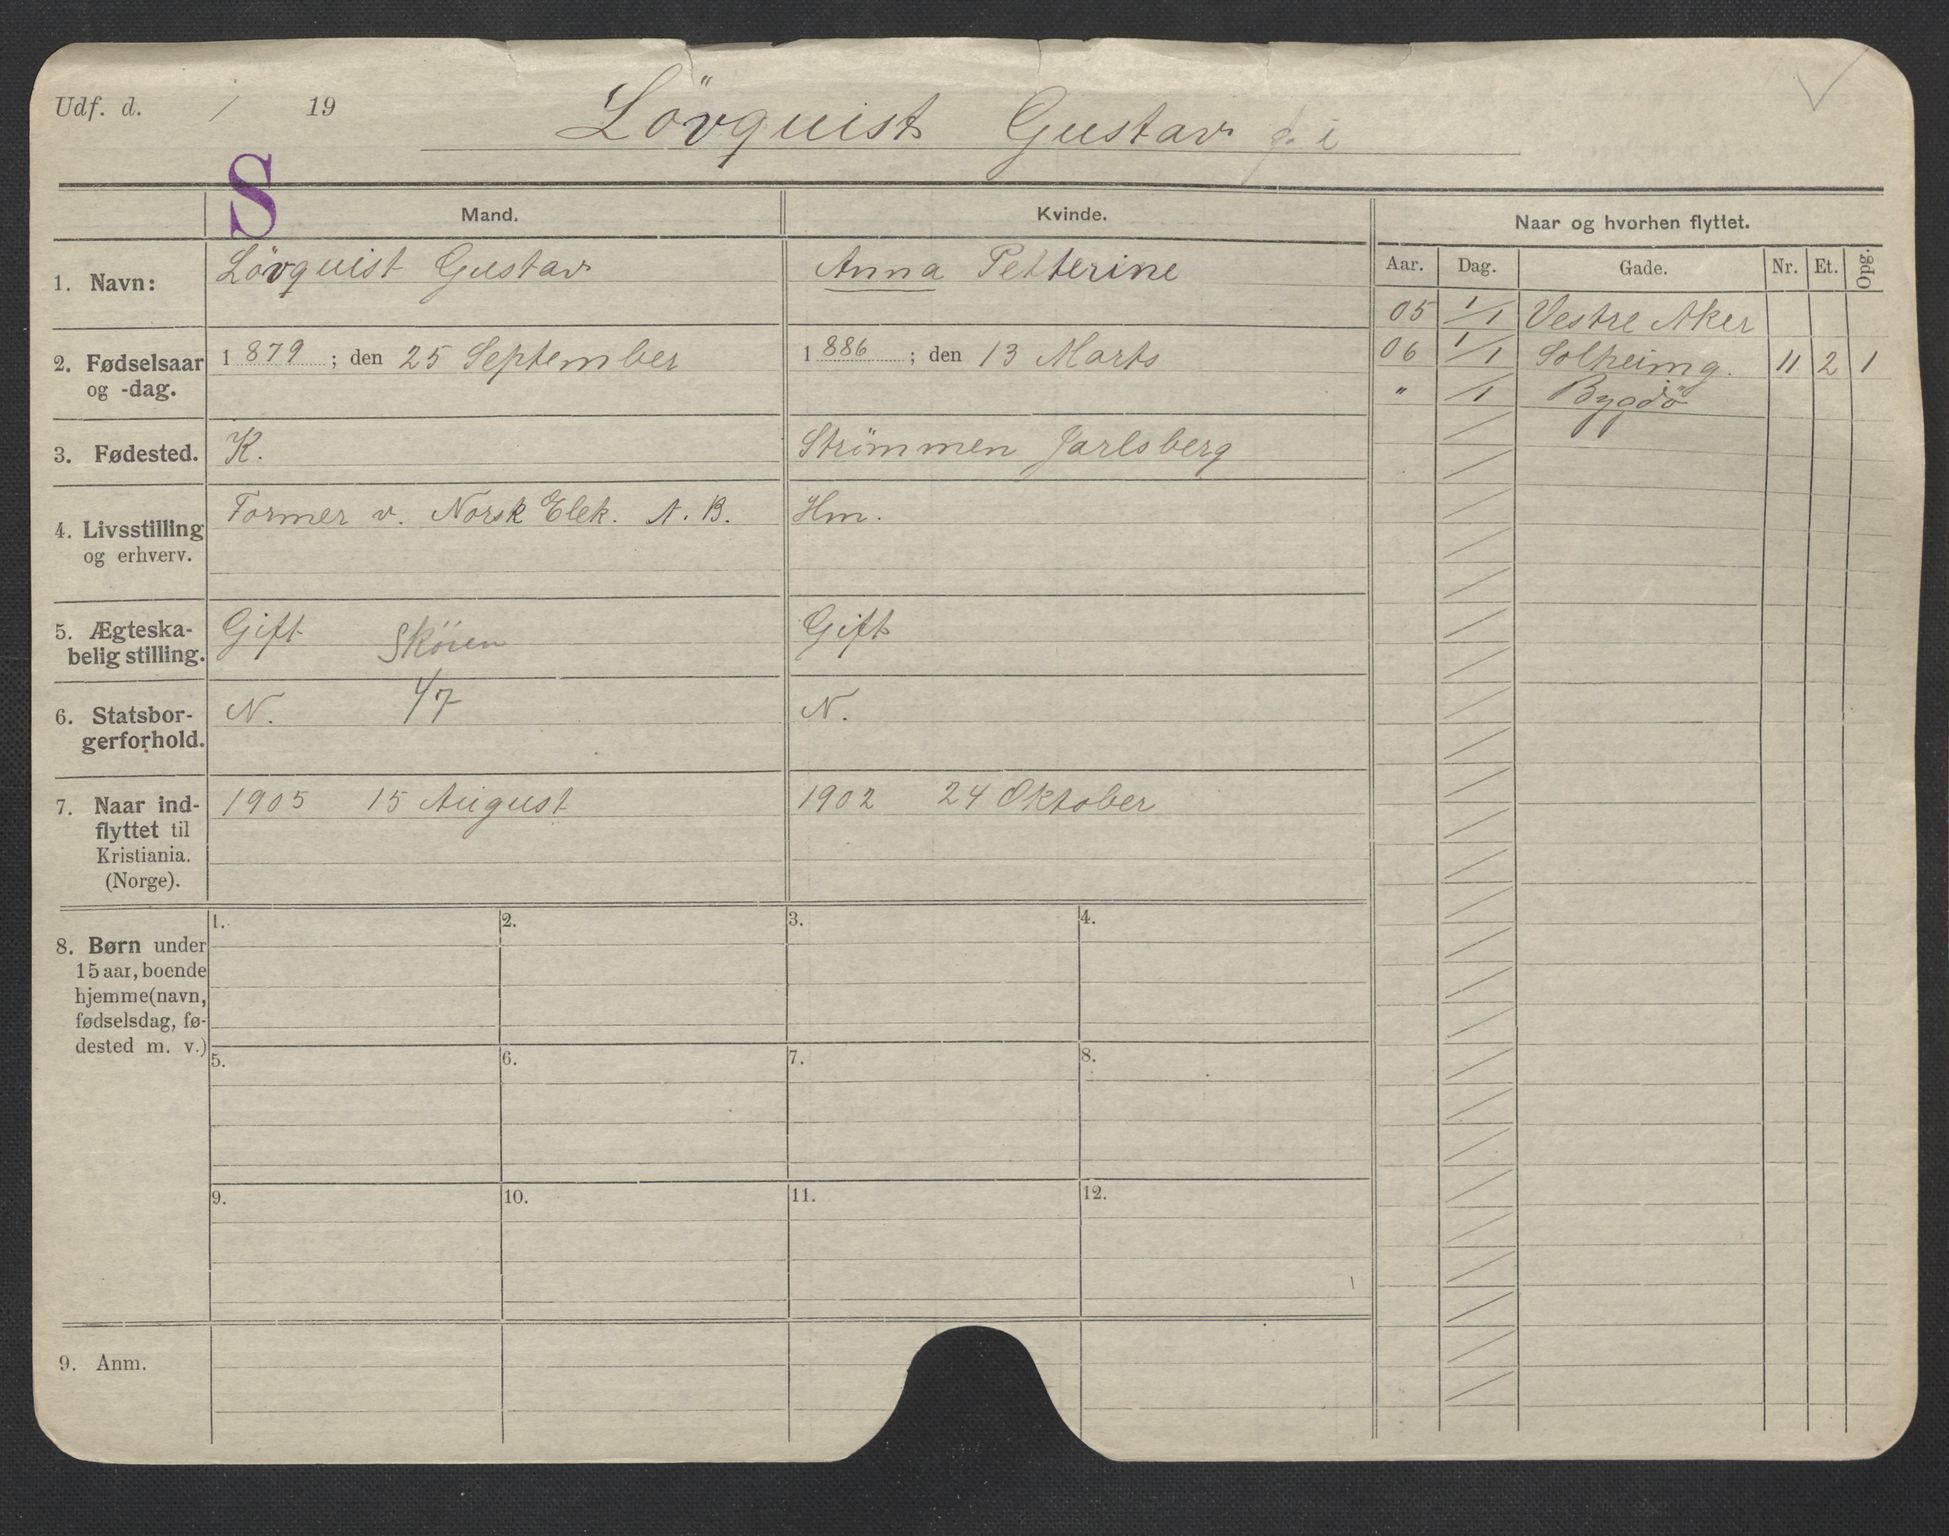 Udf. d. / 19
Lövquist Gustav
S
Mand. Kvinde. Naar og hvorhen flyttet.
Aar. Dag. Gade. Nr. Et. Opg.
1. Navn: Lövquist Gustav Anna Petterine
05 1/1 Vestre Aker
2. Fødselsaar og -dag. 1879; den 25 September 1886; den 13 Marts
06 1/1 Solheimg. 11 2 1
" /1 Bygdö
3. Fødested. K. Strømmen Jarlsberg
4. Livsstilling og erhverv. Former v. Norsk Elek. A. B. Hm.
5. Ægteska-
belig stilling. Gift Sköien Gift
6. Statsbor-
gerforhold. N. 4/7 N.
7. Naar ind-
flyttet til
Kristiania.
(Norge). 1905 15 August 1902 24 Oktober
8. Børn under
15 aar, boende
hjemme (navn,
fødselsdag, fø-
dested m. v.)
1. 2. 3. 4.
5. 6. 7. 8.
9. 10. 11. 12.
9. Anm.